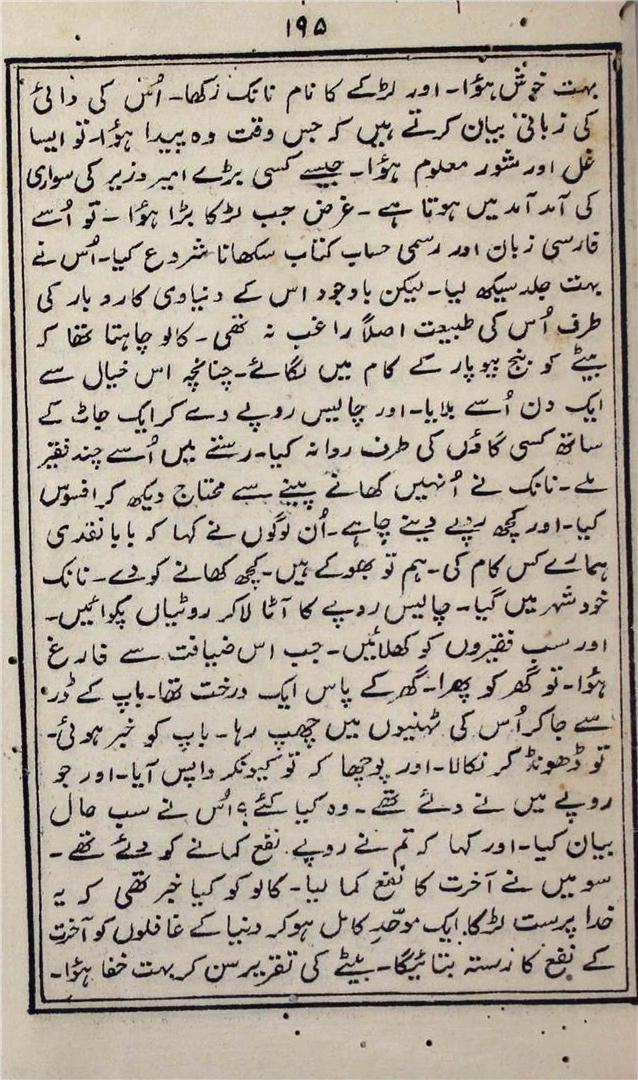 ۱۹۵
بہت خوش ہؤا۔ اور لڑکے کا نام نانک رکھا۔ اُس کی دائی
کی زبانی بیان کرتے ہیں کہ جس وقت وہ پیدا ہؤا۔ تو ایسا
غل اور شور معلوم ہؤا۔ جیسے کسی بڑے امیر وزیر کی سواری
کی آمد آمد میں ہوتا ہے۔ غرض جب لڑکا بڑا ہؤا۔ تو اُسے
فارسی زبان اور رسمی حساب کتاب سکھانا شروع کیا۔ اُس نے
بہت جلد سیکھ لیا۔ لیکن باوجود اس کے دنیاوی کاروبار کی
طرف اُس کی طبیعت اصلاً راغب نہ تھی۔ کالو چاہتا تھا کہ
بیٹے کو بنج بیوپار کے کام میں لگائے۔ چنانچہ اس خیال سے
ایک دن اُسے بلایا۔ اور چالیس روپے دے کر ایک جاٹ کے
ساتھ کسی گاؤں کی طرف روانہ کیا۔ رستے میں اُسے چند فقیر
ملے۔ نانک نے اُنہیں کھانے پینے سے محتاج دیکھ کر افسوس
کیا۔ اور کچھ روپے دینے چاہے۔ اُن لوگوں نے کہا کہ بابا نقدی
ہمارے کس کام کی۔ ہم تو بھوکے ہیں۔ کچھ کھانے کو دے۔ نانک
خود شہر میں گیا۔ چالیس روپے کا آٹا لاکر روٹیاں پکوائیں۔
اور سب فقیروں کو کھلائیں۔ جب اس ضیافت سے فارغ
ہؤا۔ تو گھر کو پھرا۔ گھر کے پاس ایک درخت تھا۔ باپ کے ڈر
سے جا کر اُس کی ٹہنیوں میں چھپ رہا۔ باپ کو خبر ہوئی۔
تو ڈھونڈ کر نکالا۔ اور پوچھا کہ تو کیونکر واپس آیا۔ اور جو
روپے میں نے دئے تھے۔ وہ کیا کئے؟ اُس نے سب حال
بیان کیا۔ اور کہا کہ تم نے روپے نفع کمانے کو دئے تھے۔
سو میں نے آخرت کا نفع کما لیا۔ کالو کو کیا خبر تھی کہ یہ
خدا پرست لڑکا ایک موحّدِ کامل ہوکر دنیا کے غافلوں کو آخرت
کے نفع کا رستہ بتائیگا۔ بیٹے کی تقریر سن کر بہت خفا ہؤا۔